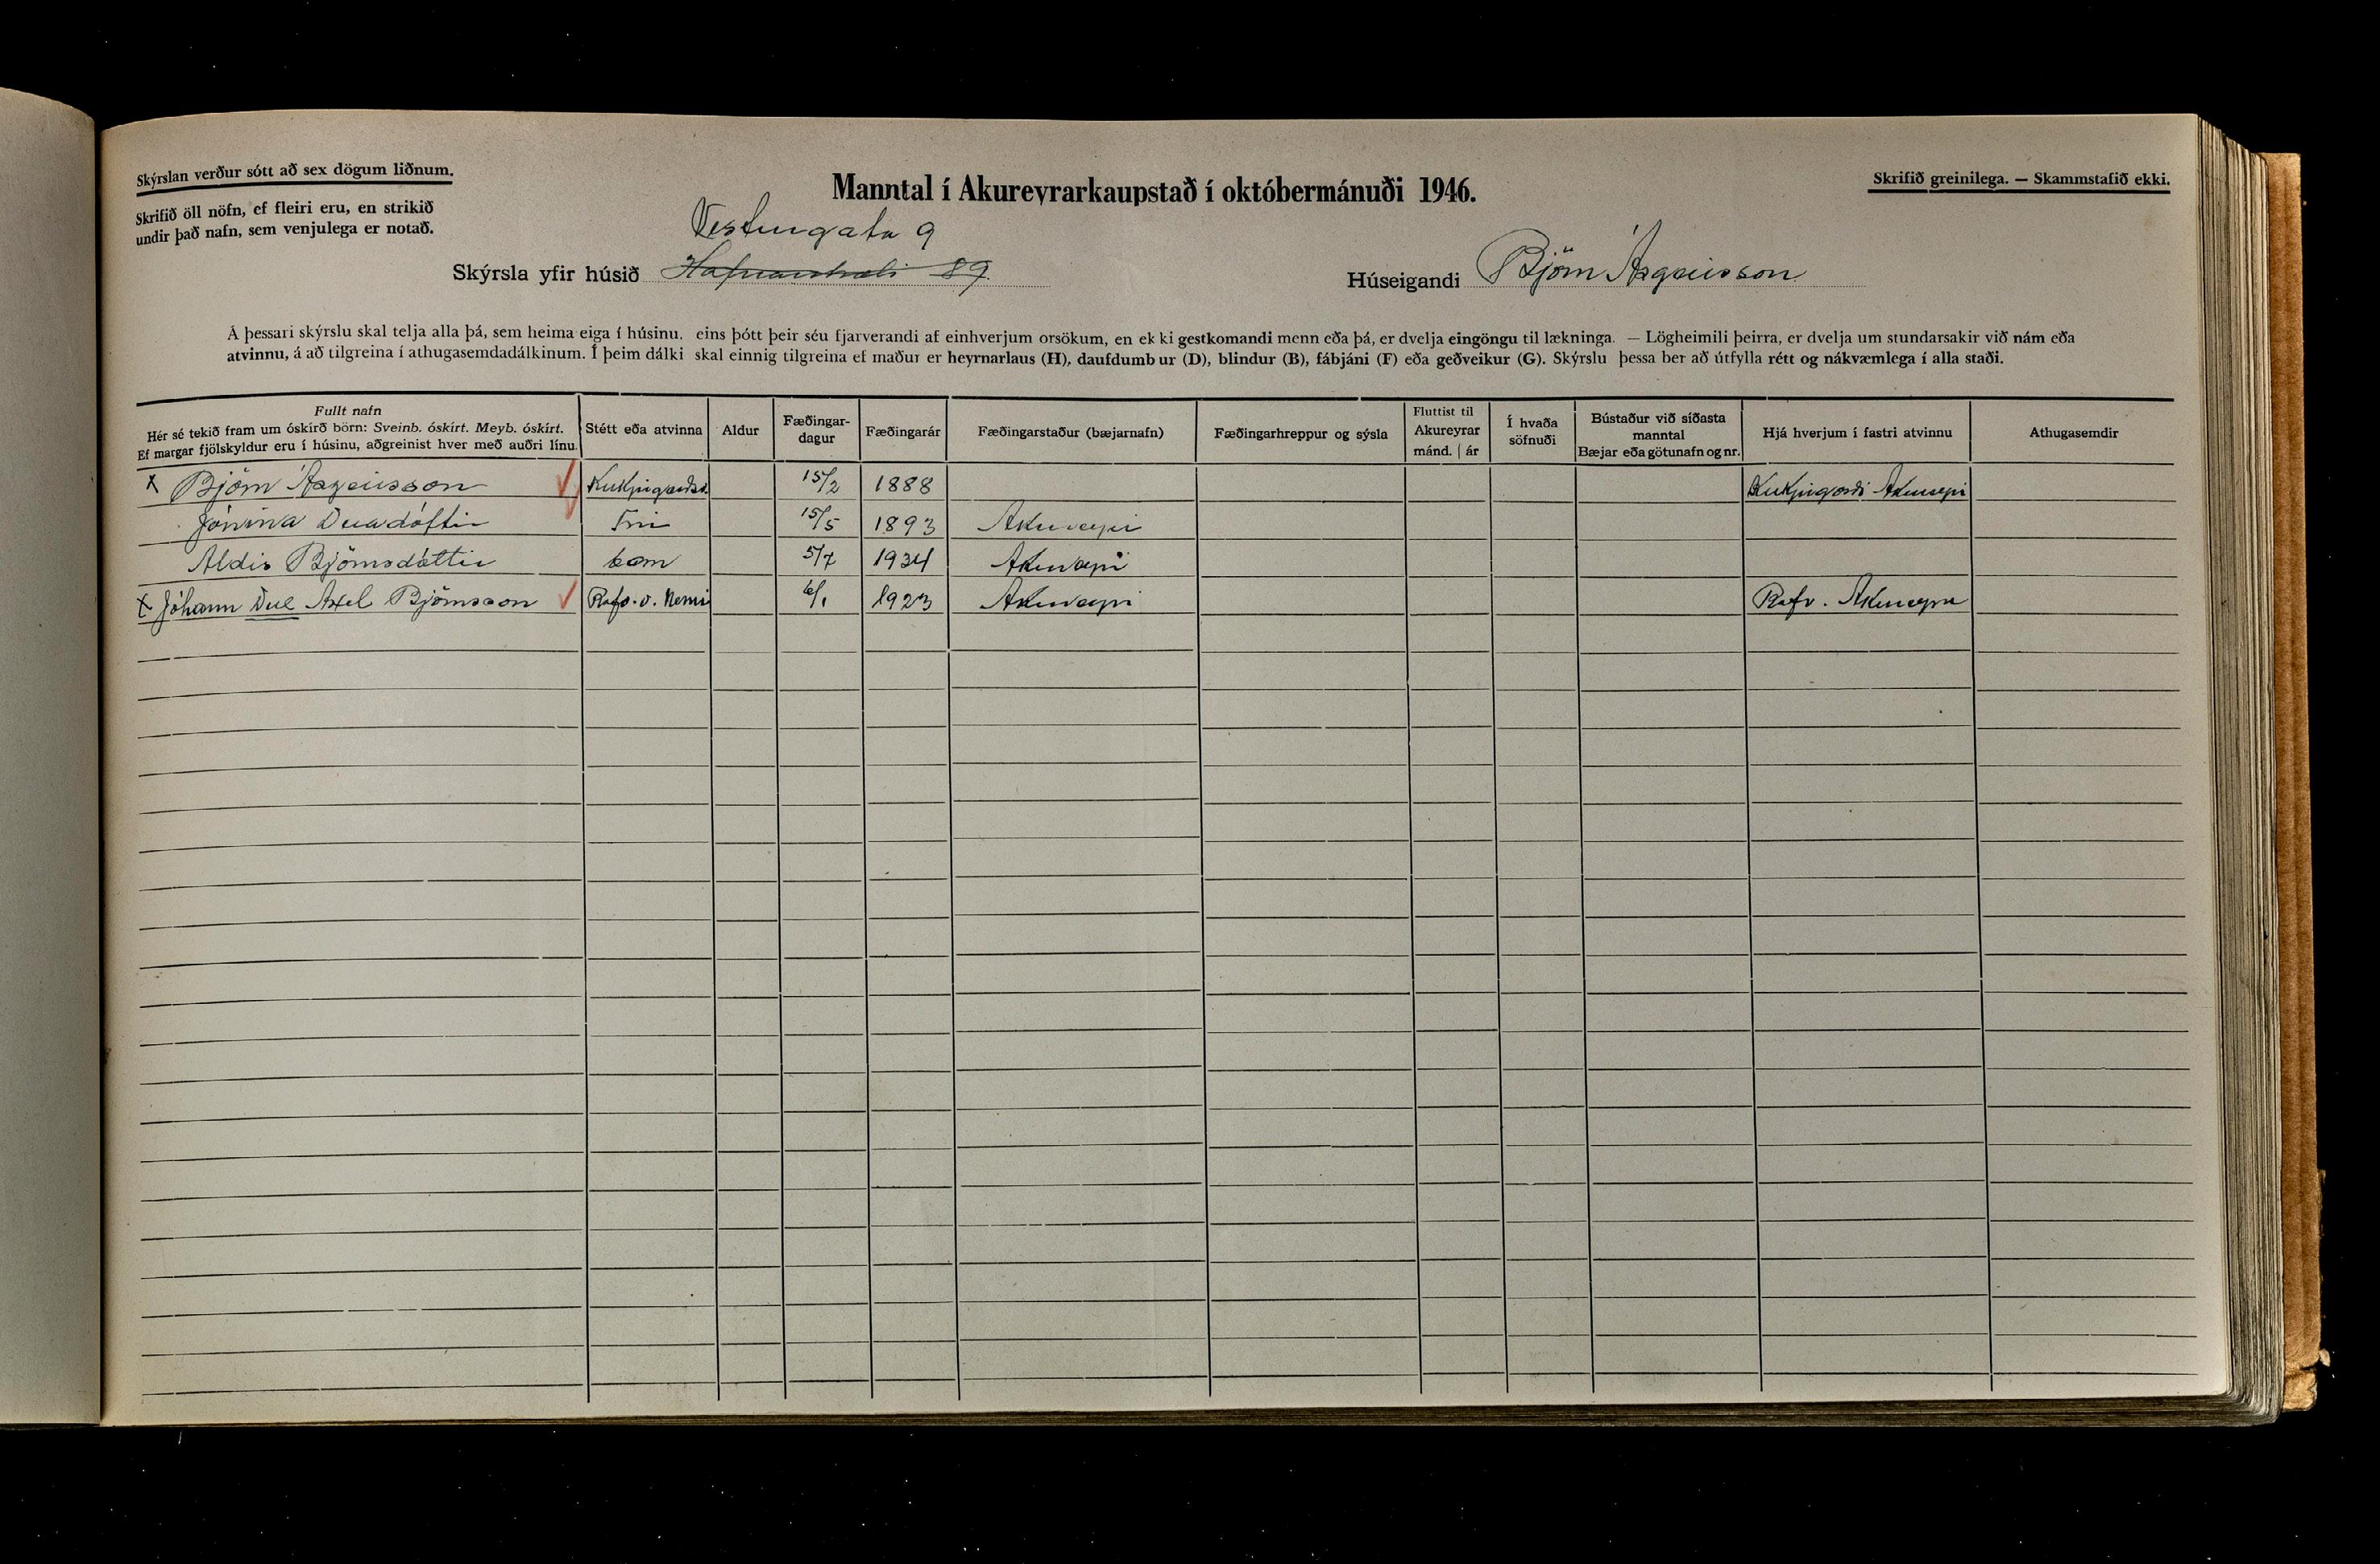 Skýrslan verður sótt að sex dögum liðnum.
Skrifið öll nöfn, ef fleiri eru, en strikið
undir það nafn, sem venjulega er notað.
Manntal í Akureyrarkaupstað í októbermánuði 1946.
Skrifið greinilega. — Skammstafið ekki.
Vesturgata 9
Skýrsla yfir húsið Hafnarstræti 89 Húseigandi Björn Ásgeirsson
Á þessari skýrslu skal telja alla þá, sem heima eiga í húsinu, eins þótt þeir séu fjarverandi af einhverjum orsökum, en ekki gestkomandi menn eða þá, er dvelja eingöngu til lækninga. — Lögheimili þeirra, er dvelja um stundarsakir við nám eða
atvinnu, á að tilgreina í athugasemdadálkinum. Í þeim dálki skal einnig tilgreina ef maður er heyrnarlaus (H), daufdumbur (D), blindur (B), fábjáni (F) eða geðveikur (G). Skýrslu þessa ber að útfylla rétt og nákvæmlega í alla staði.
Fullt nafn
Hér sé tekið fram um óskírð börn: Sveinb. óskírt. Meyb. óskírt.
Ef margar fjölskyldur eru í húsinu, aðgreinist hver með auðri línu.
Stétt eða atvinna
Aldur
Fæðingar-
dagur
Fæðingarár
Fæðingarstaður (bæjarnafn)
Fæðingarhreppur og sýsla
Fluttist til
Akureyrar
mánd. | ár
Í hvaða
söfnuði
Bústaður við síðasta
manntal
Bæjar eða götunafn og nr.
Hjá hverjum í fastri atvinnu
Athugasemdir
x Björn Ásgeirsson 15/2 1888 Akureyri
Jónína Duadóttir Frú 15/5 1893 Akureyri
Aldis Björnsdóttir barn 5/7 1934 Akureyri
x Jóhann Due Axel Björnsson Rafv. Nemi 6/1 1923 Akureyri Rafv. Akureyra